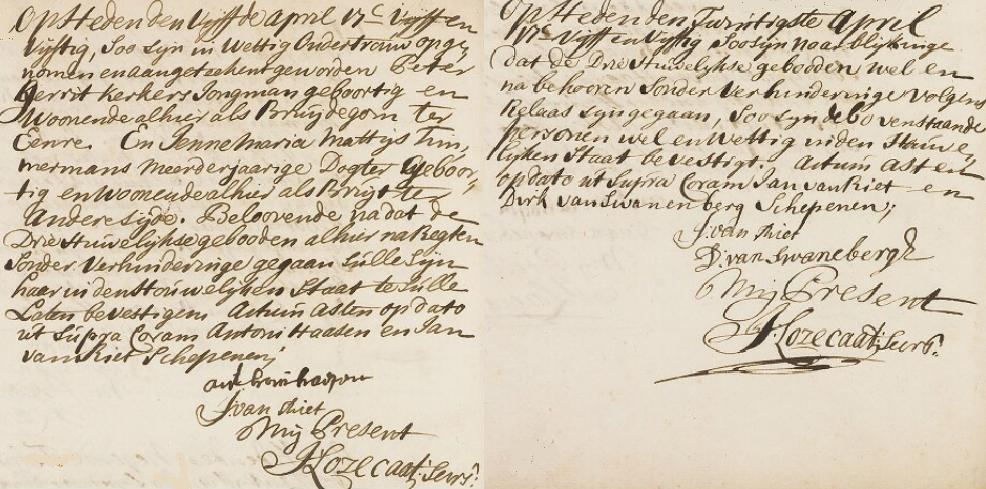 Op Heden den Vyff de April 17C Vyff en
Vyftig, Soo Syn in Wettig Ondertrouw opge„
nomen en aangeteekent geworden Peter
Gerrit Kerkers Jongman geboortig en
Woonende alhier als Bruijdegom ter
Eenre. En Jennemaria Mattijs Tim„
mermans meerderjaarige Dogter geboor„
tig en Woonende alhier als Bruyt ter
Andere Syde. Beloovende na dat de
Drie Huwelykse geboden alhier na Regten
Sonder Verhinderinge gegaan Sulle Syn
haar in den Houwelyken Staat te Sulle
Laten bevestigen Actum Asten op dato
ut Supra Coram Antoni Haasen en Jan
van Riet Schepenen;
J: van Riet
Mij Present
J: Lozecaat: Secrs:
Op Heden den Twintigste April
17C Vyff en Vyftig Soo Syn naar blykinge
dat de Drie Huwelykse gebodden wel en
na behooren Sonder Verhinderinge volgens
Relaas Syn gegaan, Soo Syn de bovenstaande
Personen wel en Wettig in den Houwe„
lyken Staat bevestigt. Actum Asten
op dato ut Supra Coram Jan van Riet en
Dirk van Swanenberg Schepenen;
J: van Riet
D: van Swanebergh
Mij Present
J: Lozecaat: Secrs: